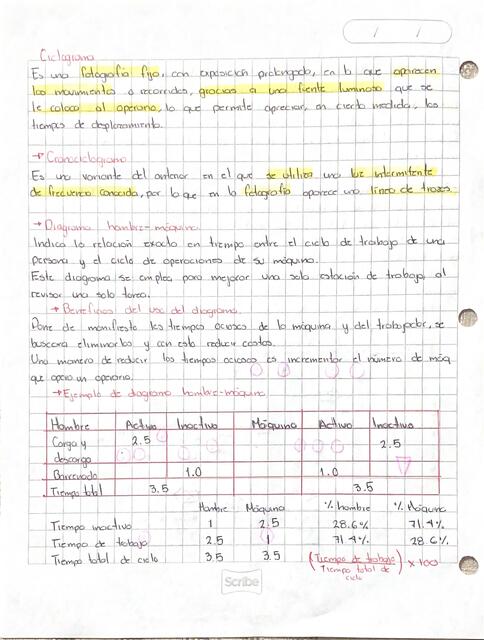 Ciclograma
Es una fotografía fija, con exposición prolongada, en la que aparecen
los movimientos o recorridos, gracias a una fuente luminosa que se
le coloca al operario, lo que permite apreciar, en cierto medida, los
tiempos de desplazamiento.
→ Cronociclograma
Es una variante del anterior en el que se utiliza una luz intermitente
de frecuencia conocida, por lo que en la fotografía aparece una línea de trazos.
→ Diagrama hombre-máquina
Indica la relación exacta en tiempo entre el ciclo de trabajo de una
persona y el ciclo de operaciones de su máquina.
Este diagrama se emplea para mejorar una sola estación de trabajo, al
revisar una sola tarea.
→ Beneficios del uso del diagrama.
Pone de manifiesto los tiempos ociosos de la máquina y del trabajador, se
buscara eliminarlos y con esto reducir costos.
Una manera de reducir los tiempos ociosos es incrementar el número de máq
que opera un operario.
→ Ejemplo de diagrama hombre-máquina
Hombre Activo Inactivo Máquina Activo Inactivo
Carga y 2.5 2.5
descarga
Barrenado 1.0 1.0
Tiempo total 3.5 3.5
Hombre Máquina % hombre % Máquina
Tiempo inactivo 1 2.5 28.6% 71.4%
Tiempo de trabajo 2.5 1 71.4% 28.6%
Tiempo total de ciclo 3.5 3.5 (Tiempo de trabajo / Tiempo total de ciclo) × 100
Scribe